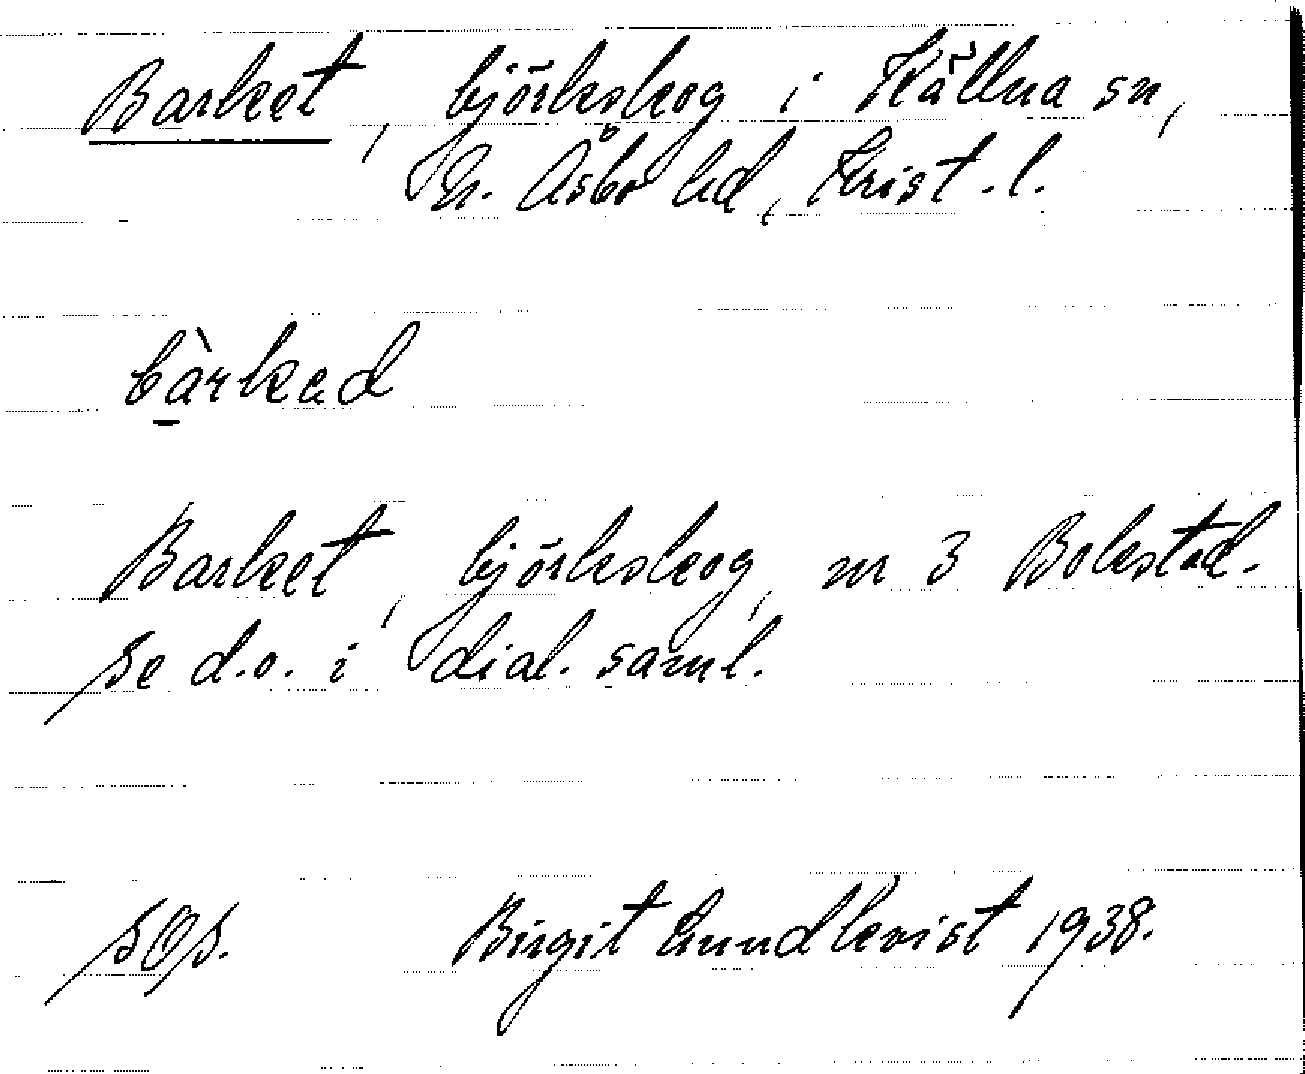 Barket, björkskog i Källna sn,
N. Åsbo hd, Krist. l.
bàrkad
Barket, björkskog, nr 3 Bokestad.
Se d.o. i dial. saml.
SOS. Birgit Lundkvist 1938.